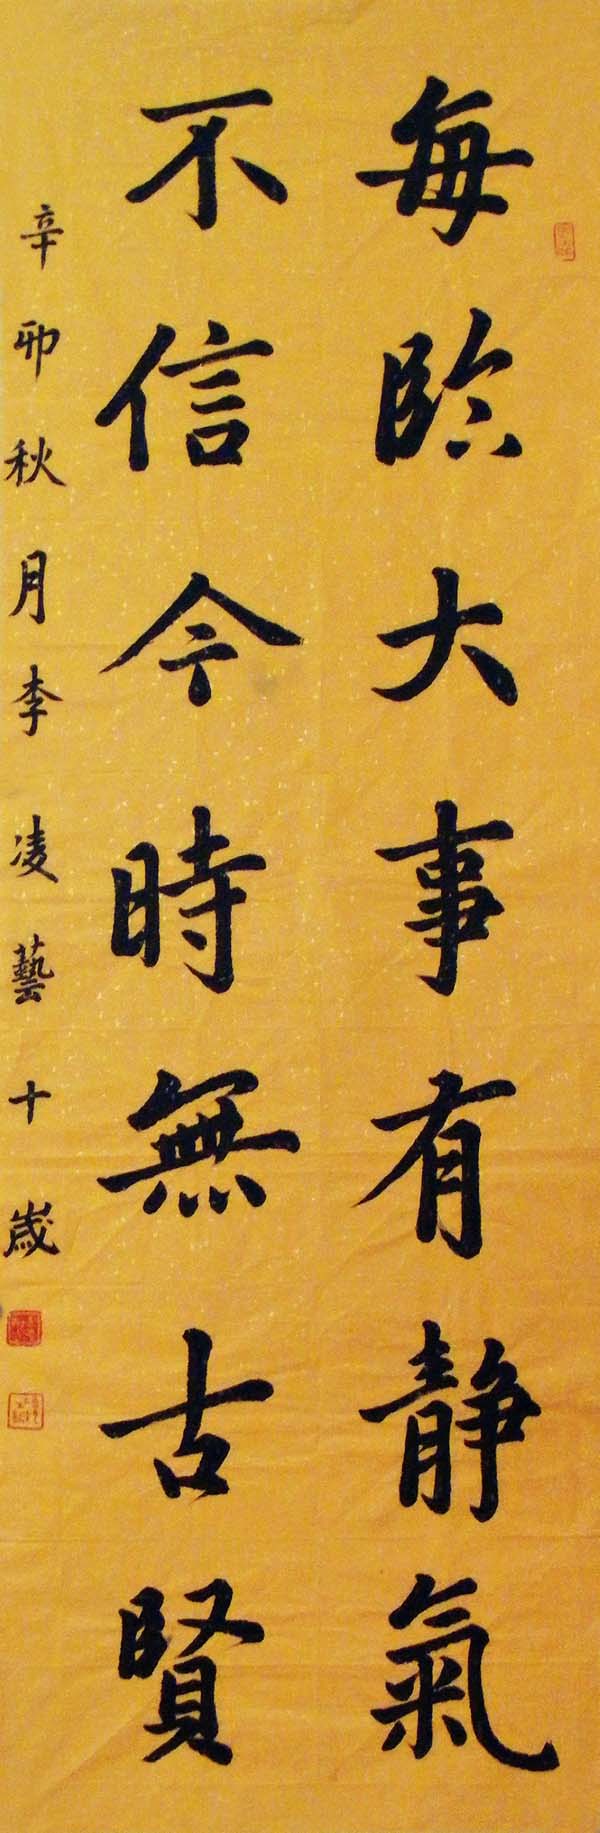 每臨大事有静氣
不信今時無古賢
辛卯秋月李凌藝十歲